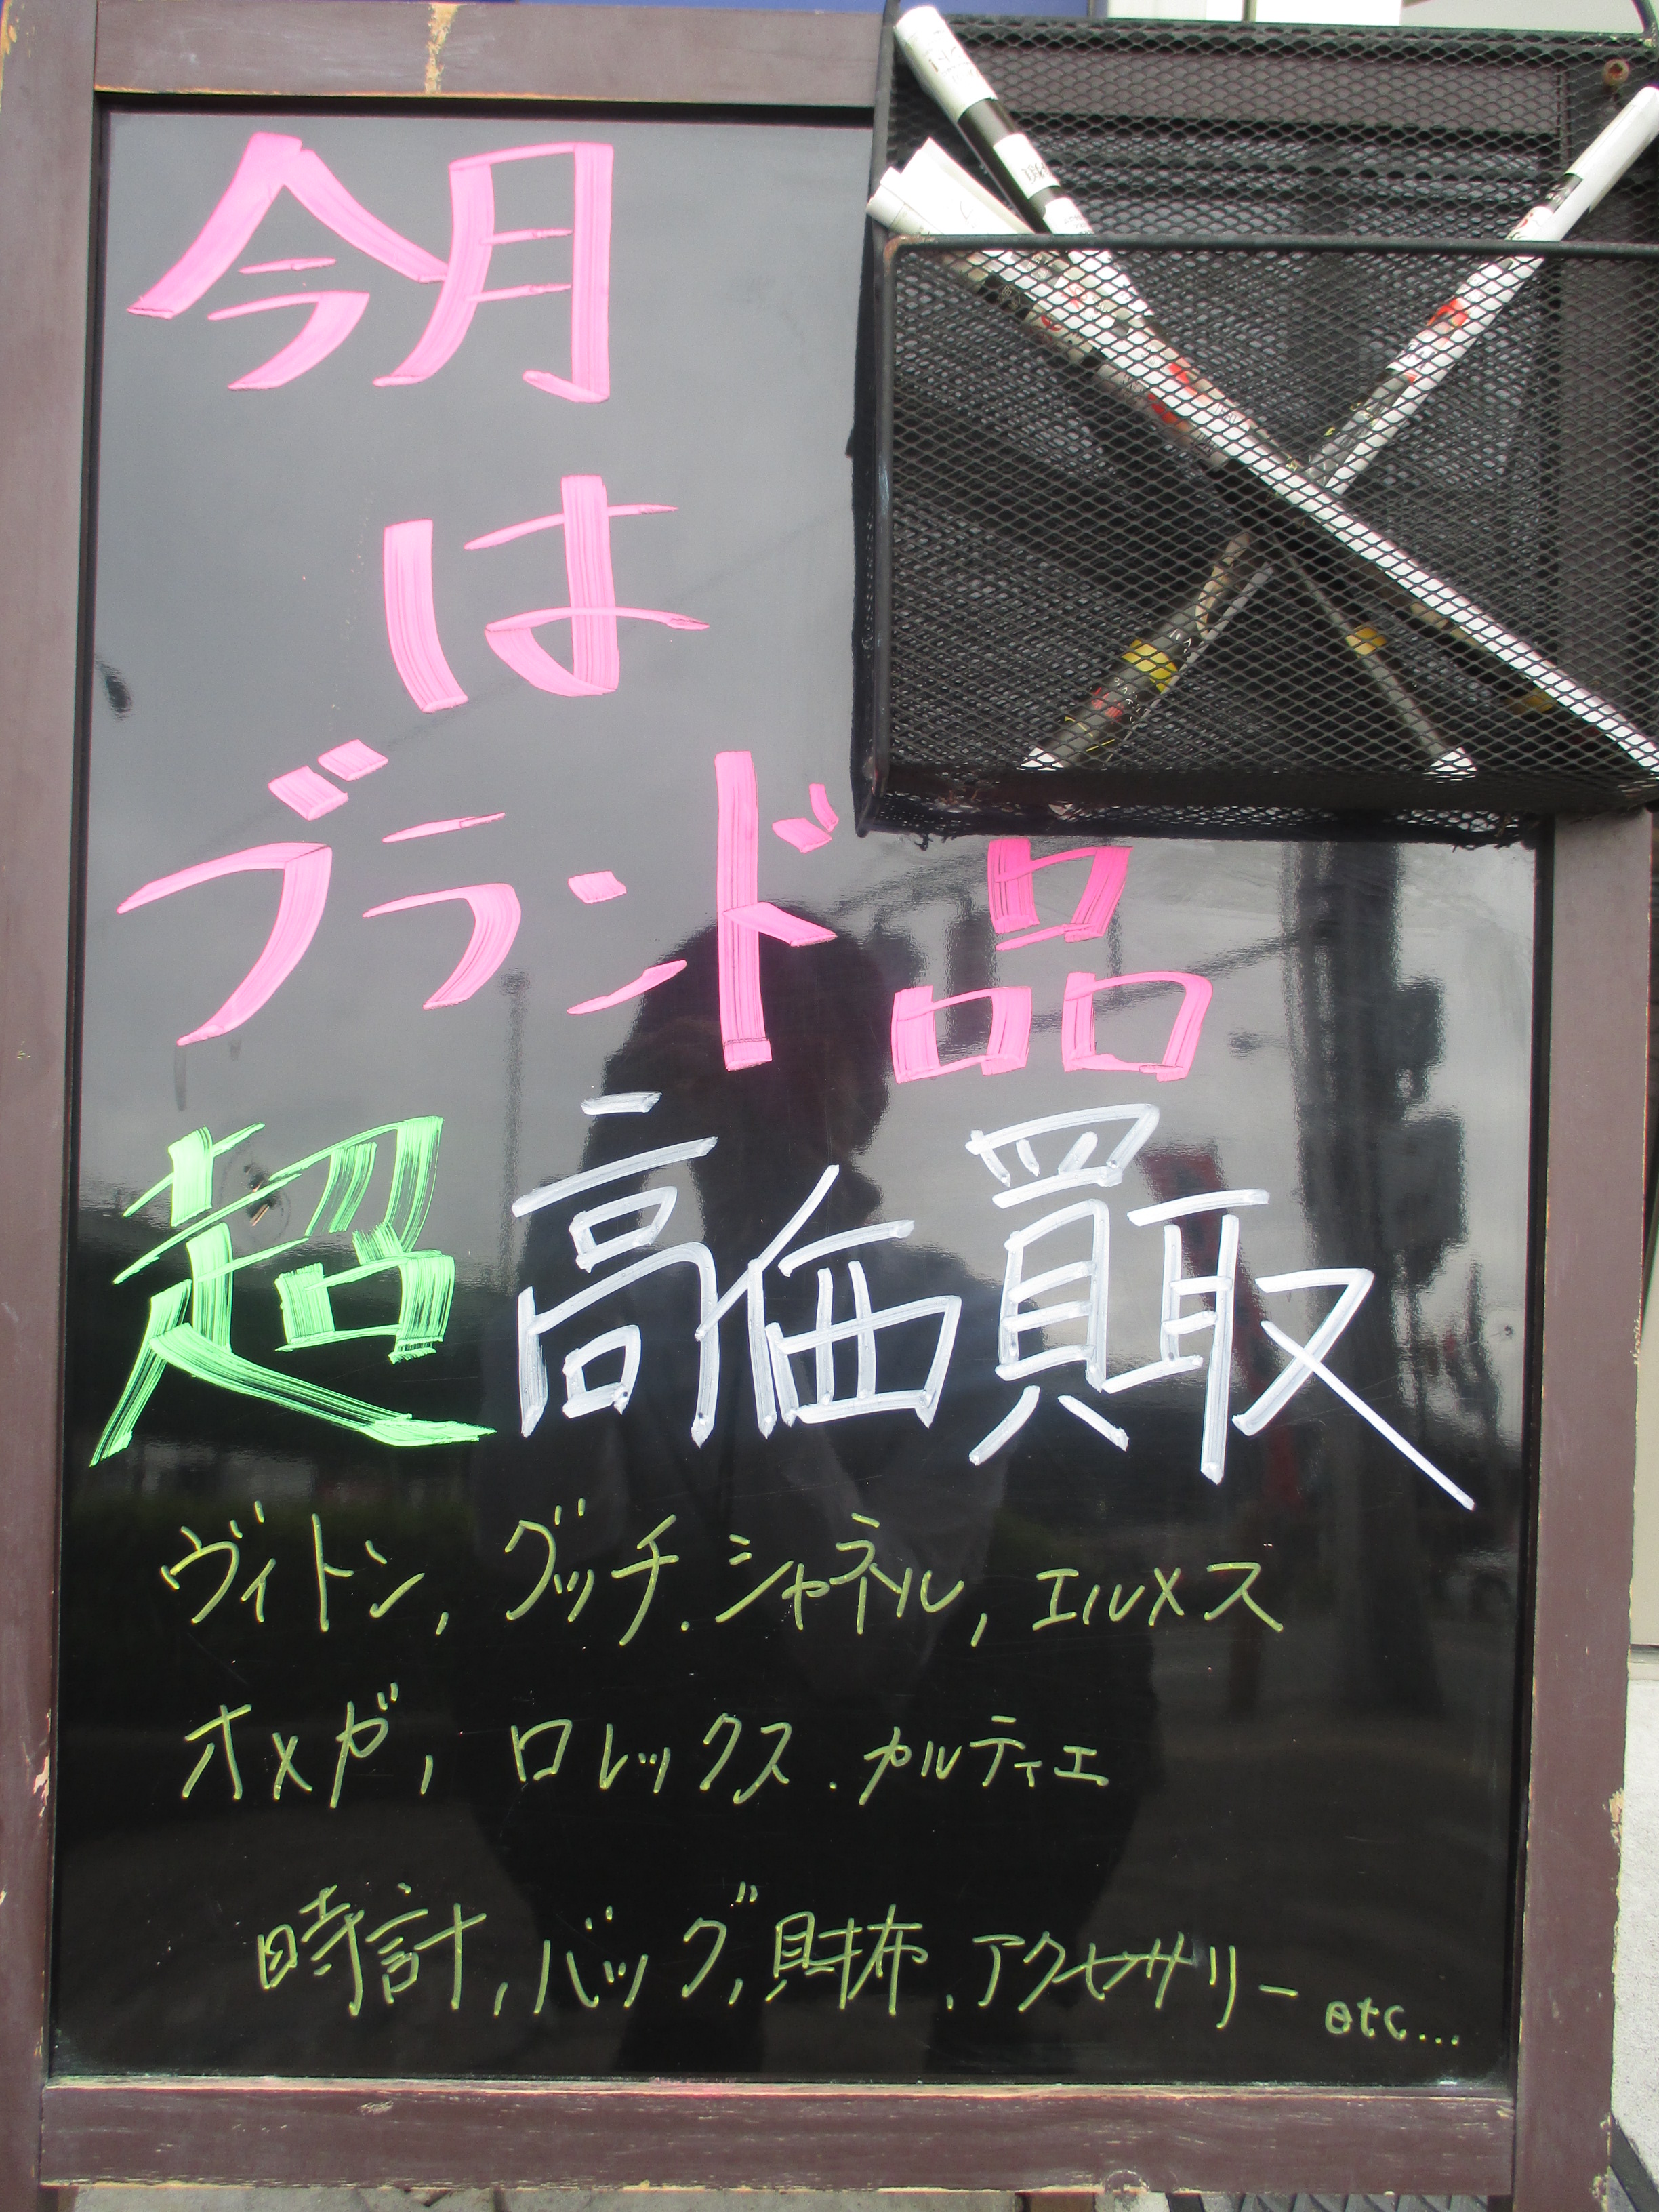 今月
は
ブランド品
超高価買取
ヴィトン,グッチ.シャネル,エルメス
オメガ,ロレックス.カルティエ
時計,バッグ,財布.アクセサリー etc...